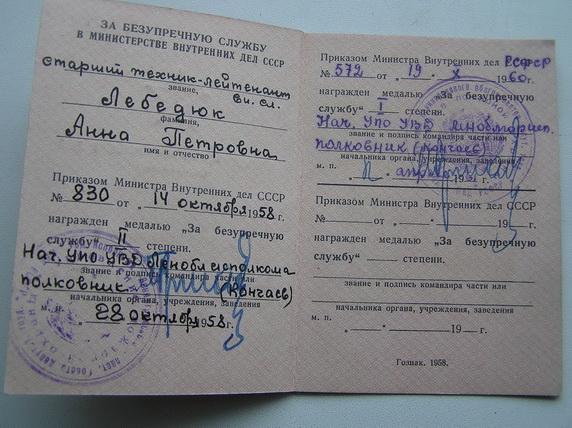 ЗА БЕЗУПРЕЧНУЮ СЛУЖБУ
В МИНИСТЕРСТВЕ ВНУТРЕННИХ ДЕЛ СССР
старший техник-лейтенант
вн. сл.
звание,
Лебедюк
фамилия,
Анна Петровна
имя и отчество
Приказом Министра Внутренних дел СССР
№ 830 от „ 14 октября 1958 г.
награжден медалью „За безупречную
службу“ II степени.
Нач. УПО УВД Леноблисполкома
звание и подпись командира части или
полковник (Кончаев)
начальника органа, учреждения, заведения
м. п.
28 октября 1958 г.
Приказом Министра Внутренних дел РСФСР
№ 572 от „ 19 “ X 1960 г.
награжден медалью „За безупречную
службу“ I степени.
Нач. УПО УВД
звание и подпись командира части или
полковник (Кончаев)
начальника органа, учреждения, заведения
м. п.
Приказом Министра Внутренних дел СССР
№ — от „ — “ — 19 — г.
награжден медалью „За безупречную
службу“ — степени.
звание и подпись командира части или
начальника органа, учреждения, заведения
м. п. „ — “ — 19 — г.
Гознак. 1958.